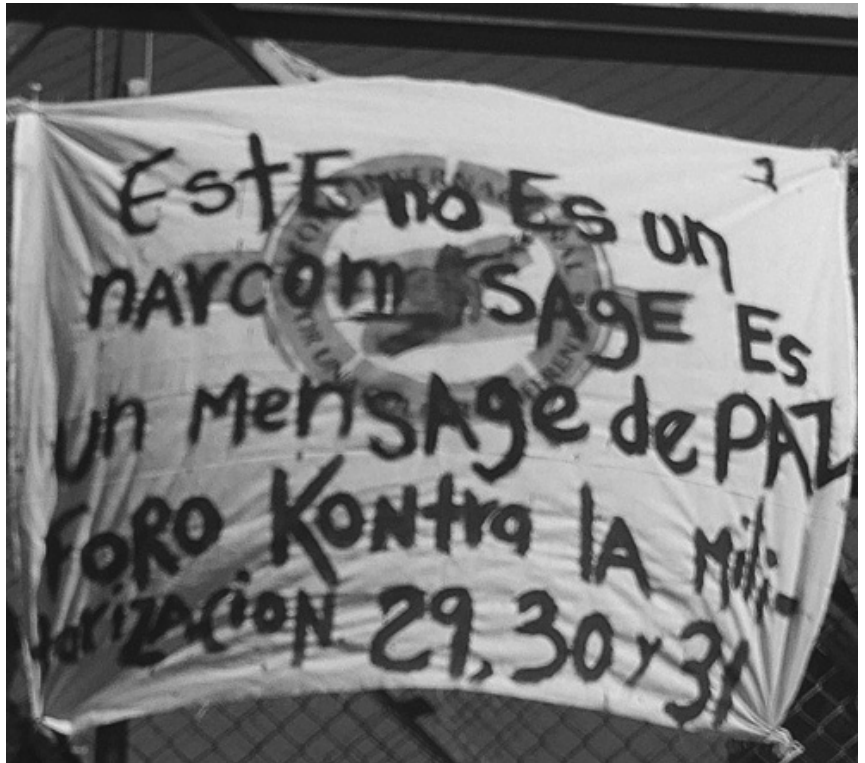 EstE no Es un
nArcom SAgE Es
un MensAge de PAZ
FORO KoNtra lA Mili-
tarizACioN 29, 30 y 31